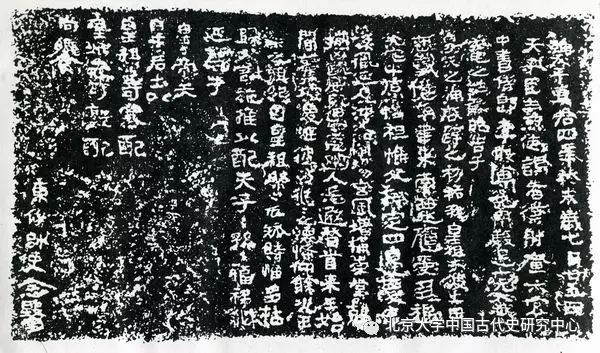 維太平真君四年癸未歲七月廿五日
天子臣燾使謁者僕射庫六官
中書侍郎李敞傅㝹用駿足一元大武
柔毛之牲敢昭告于
皇天之神啟辟之初祐我皇祖于彼土田
歷載億年聿來南遷應受多福
光宅中原惟祖惟父拓定四邊慶流
後胤延及沖人闡揚玄風增構崇堂剋
揃凶醜威暨四荒幽人忘遐稽首來王始
聞舊墟爰在彼方悠悠之懷希仰餘光王
業之興起自皇祖綿綿瓜瓞時惟多祜
歸以謝施推以配天子子孫孫福祿永
延薦于
皇皇帝天
皇皇后土以
皇祖先可寒配
皇妣先可敦配
尚饗
東作帥使念鑿
北京大学中国古代史研究中心